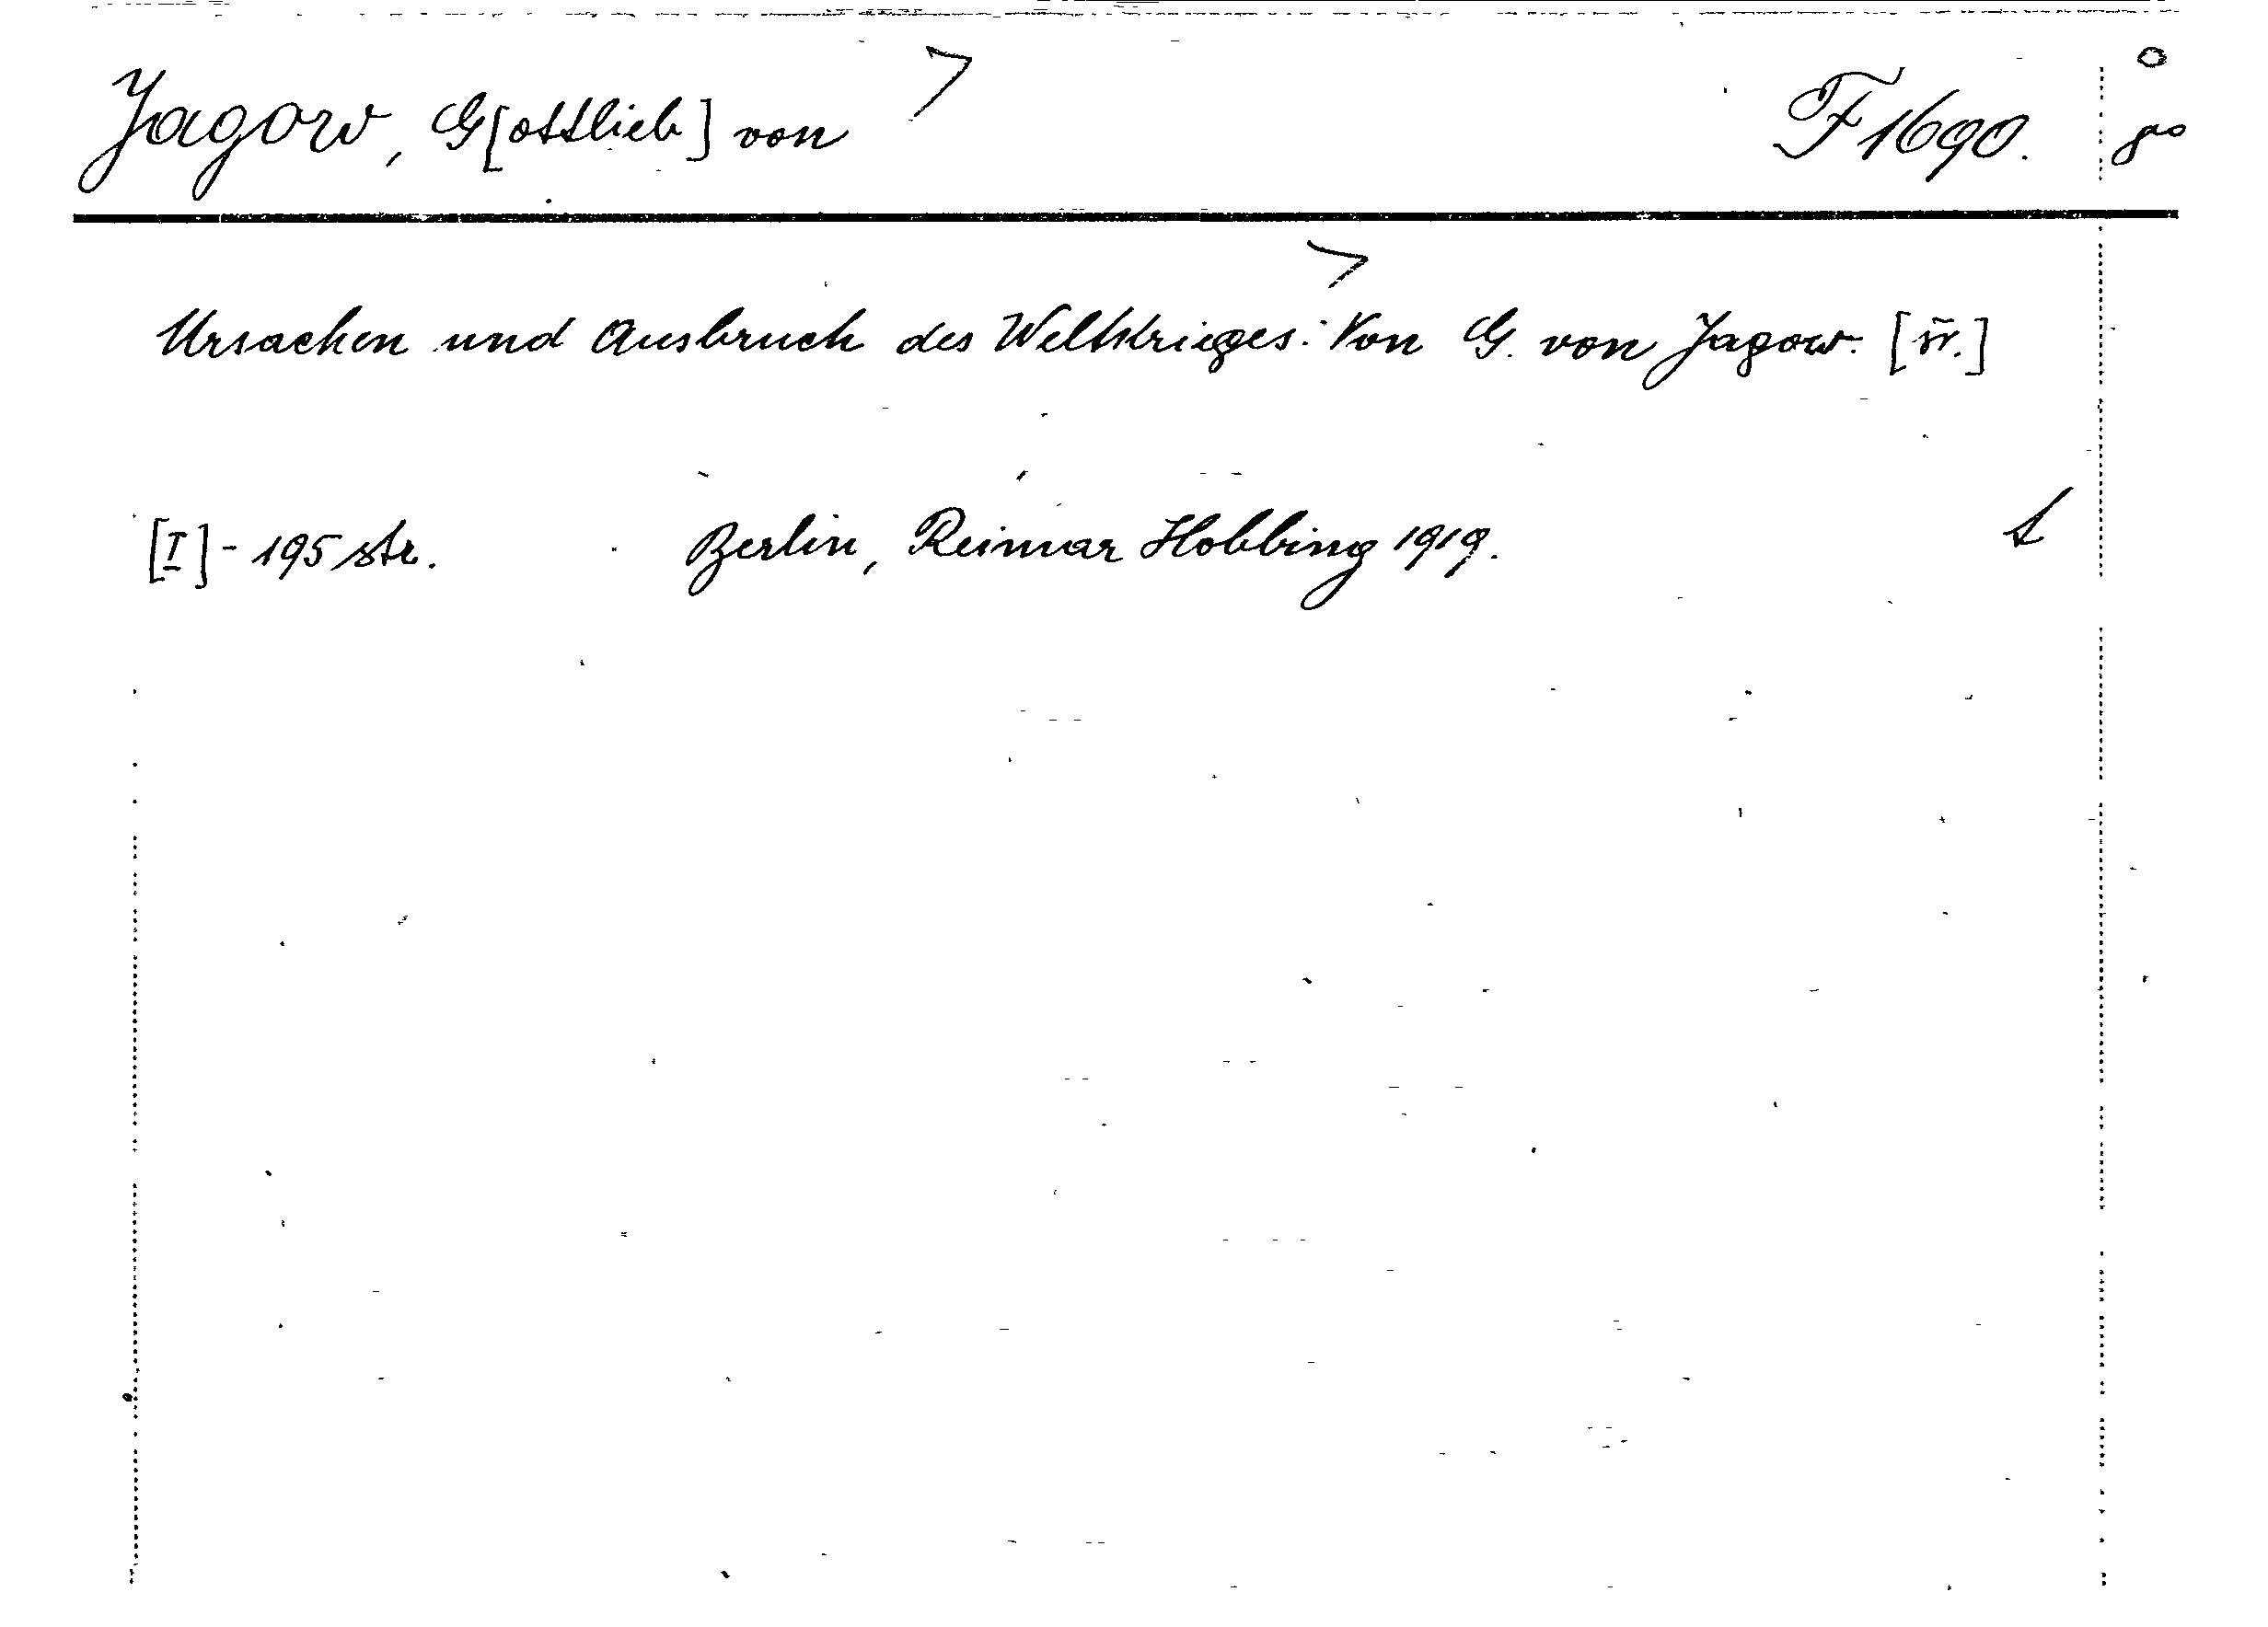 Jagow, G[ottlieb] von F 1690. 8°
Ursachen und Ausbruch des Weltkrieges. Von G. von Jagow.
[I] - 195 str. Berlin, Reimar Hobbing 1919.